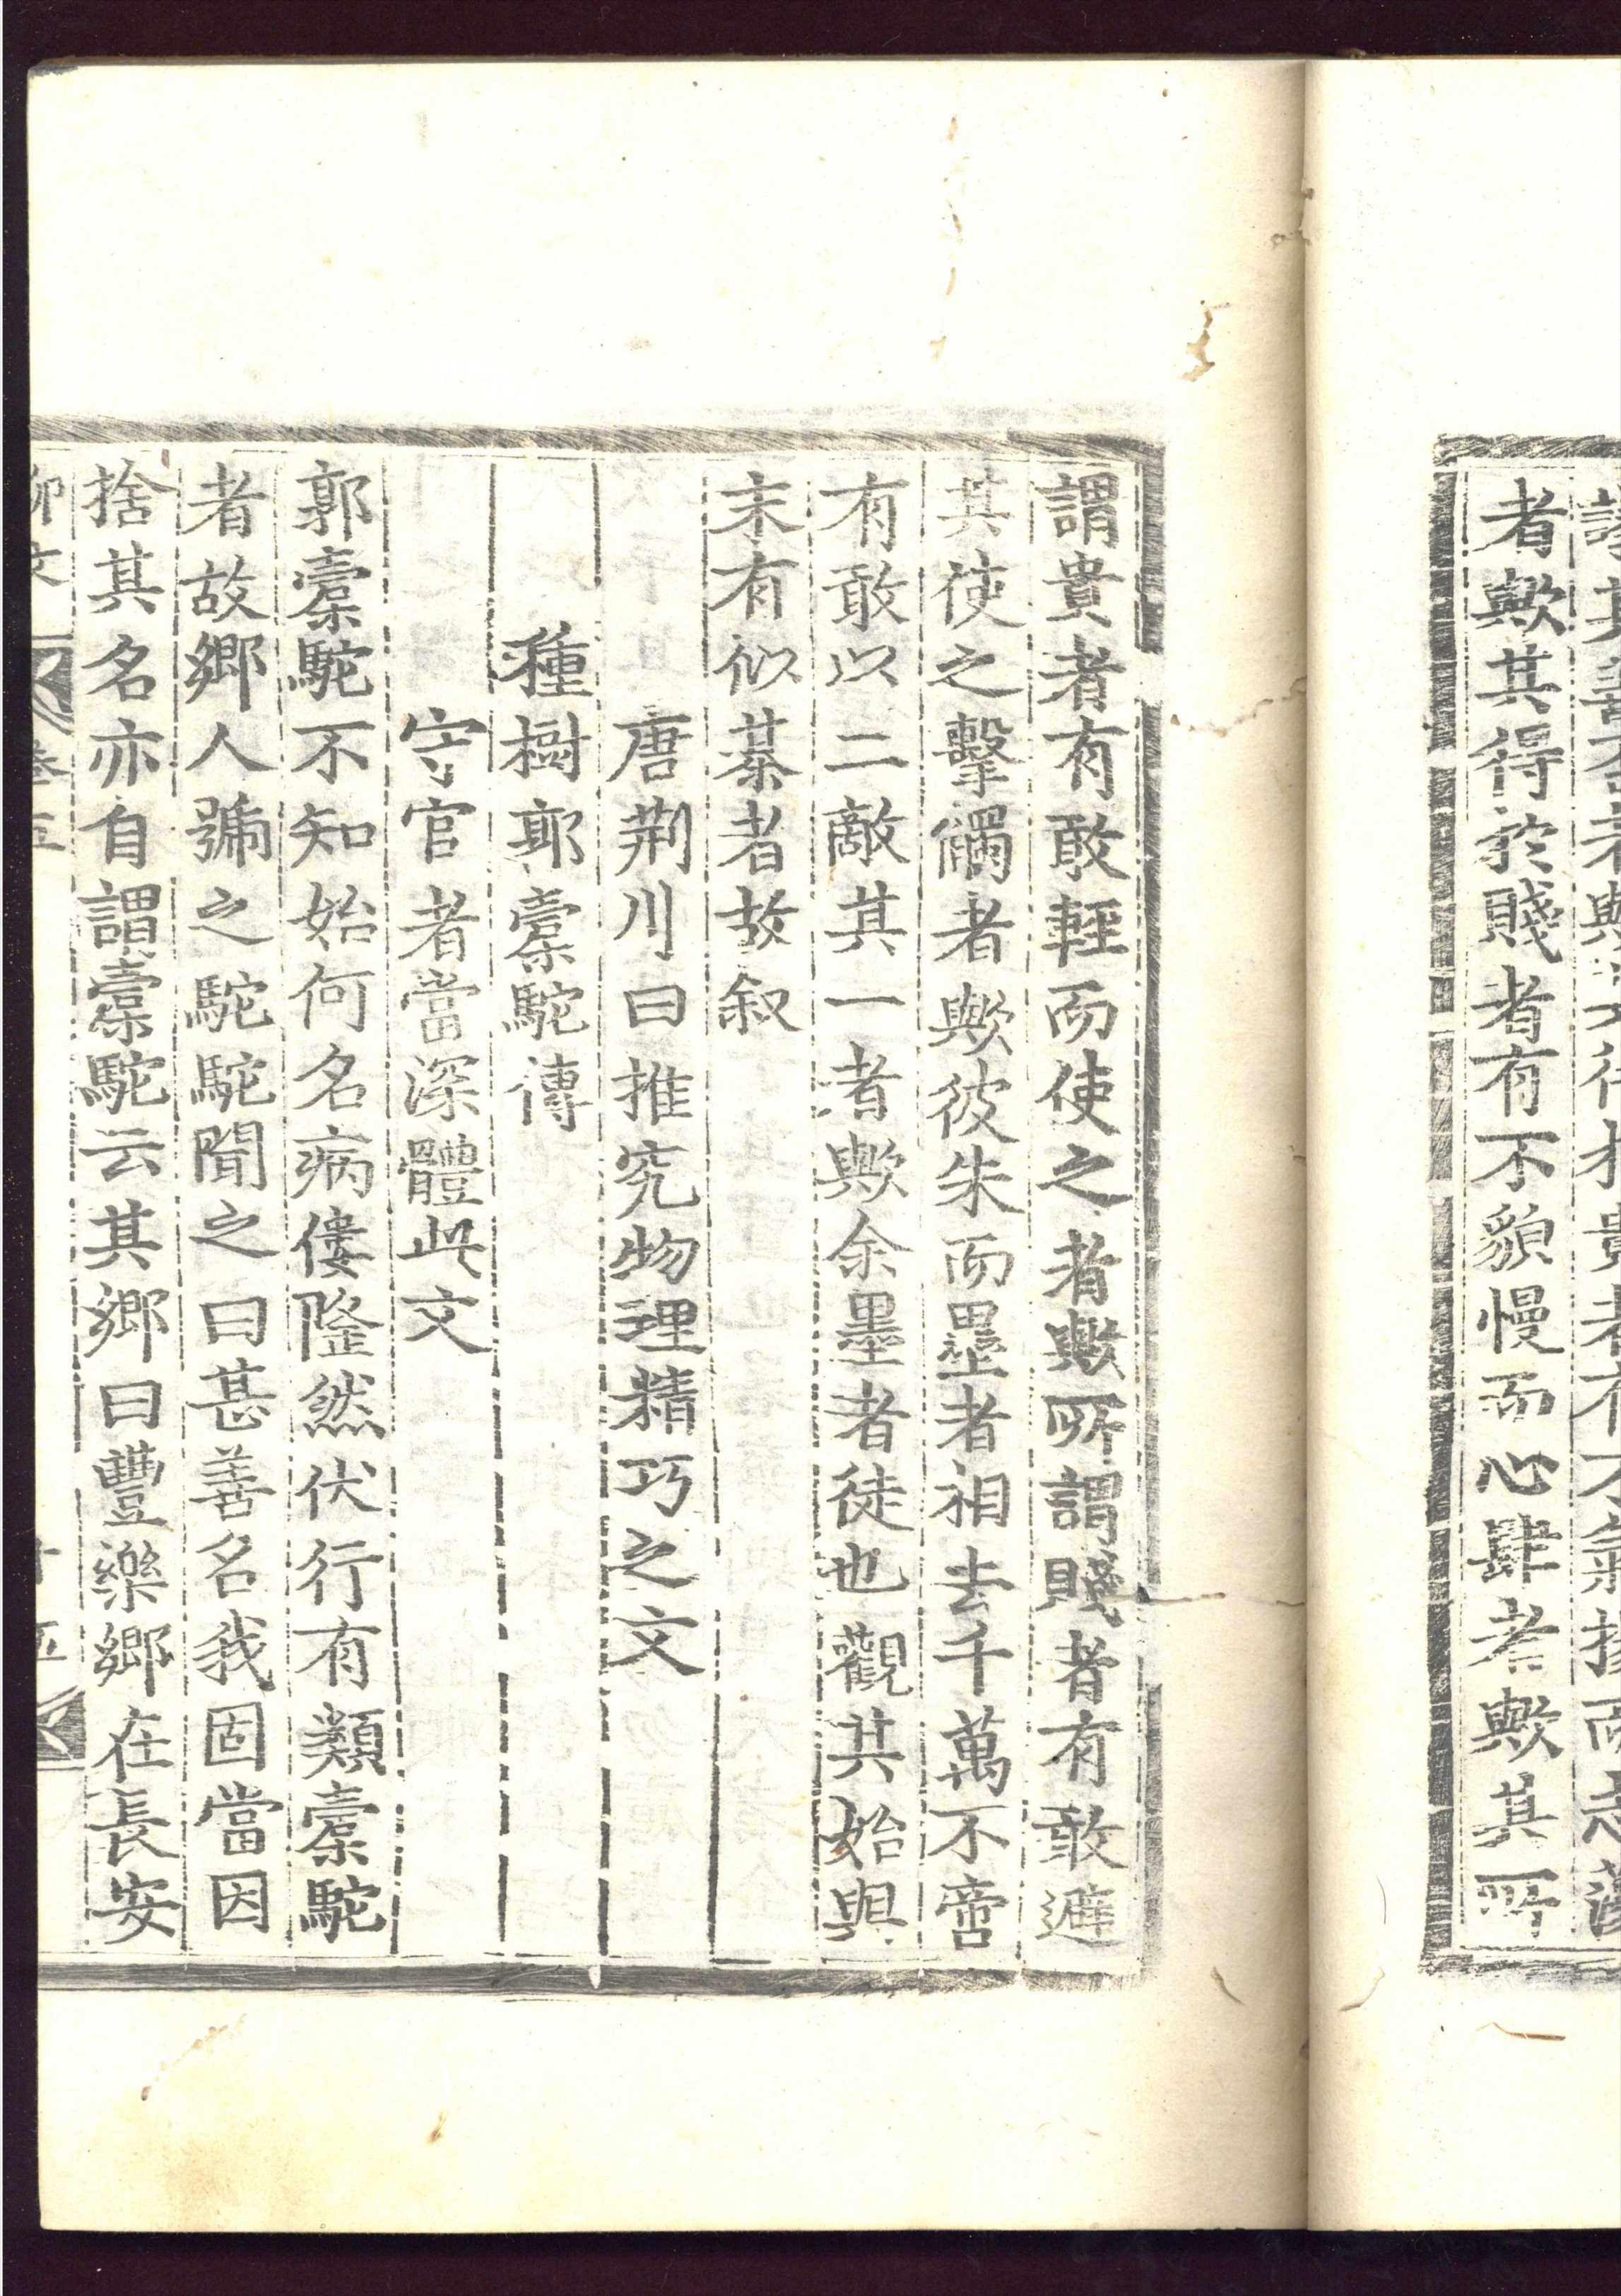 者歟其得於賤者有不貌慢而心肆者歟其所
謂貴者有敢輕而使之者歟所謂賤者有敢避
其使之擊觸者歟彼朱而墨者相去千萬不啻
有敢以二敵其一者歟余墨者徒也觀其始與
末有似棊者故叙
唐荆川曰推究物理精巧之文
種樹郭橐駝傳
守官者當深體此文
郭橐駝不知始何名病僂隆然伏行有類橐駝
者故鄉人號之駝駝聞之曰甚善名我固當因
捨其名亦自謂橐駝云其鄉曰豐樂鄉在長安